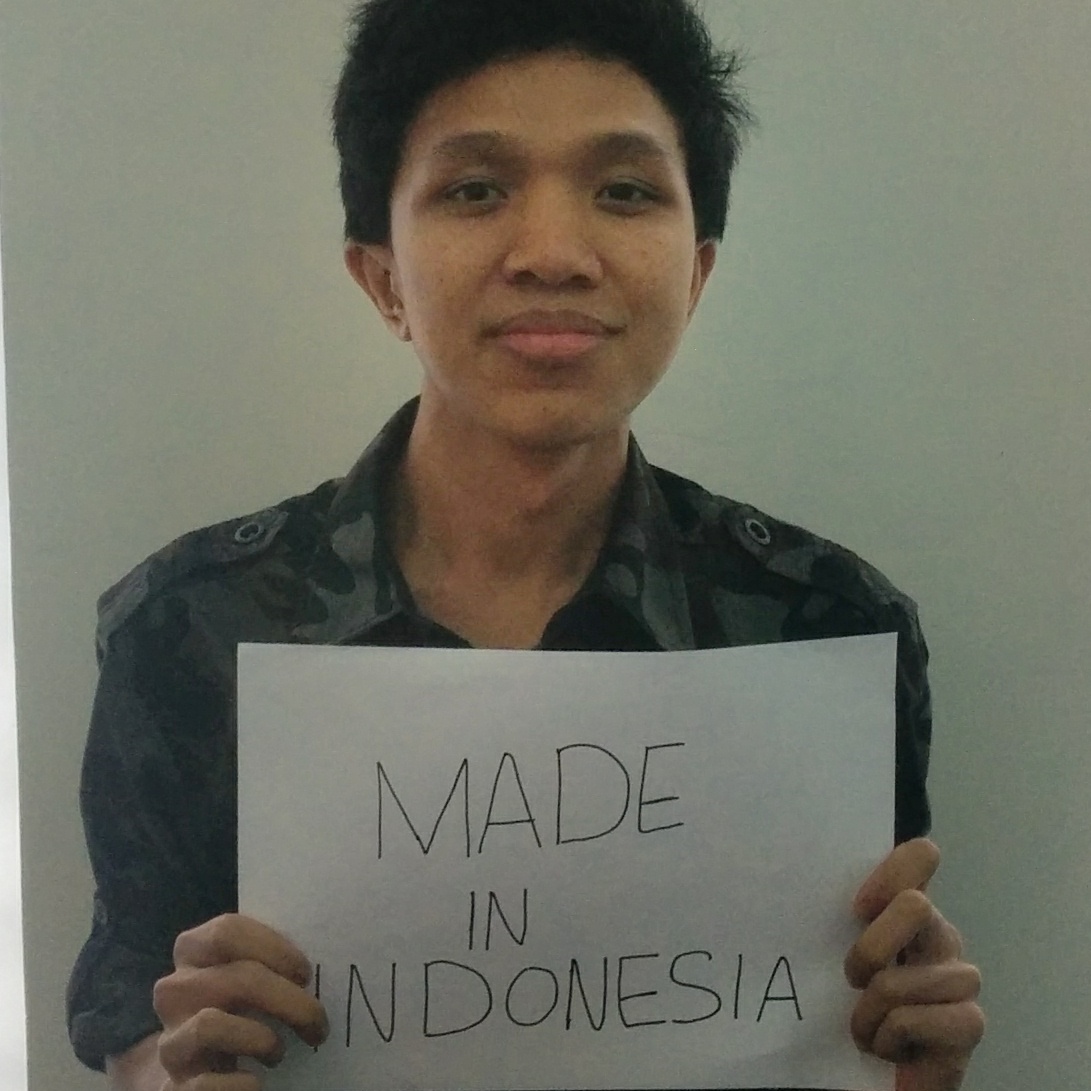 MADE
IN
INDONESIA